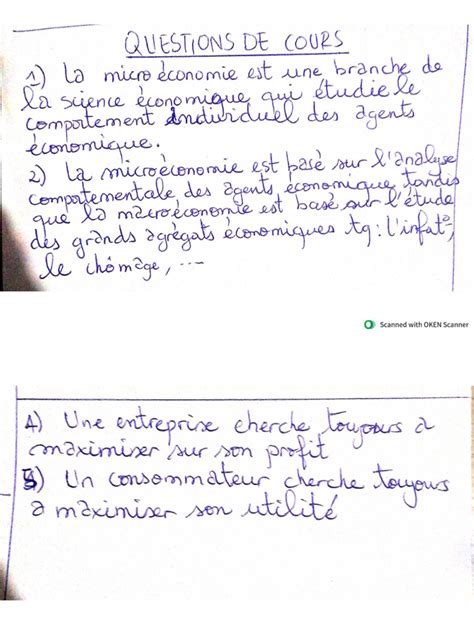 QUESTIONS DE COURS
1) La micro économie est une branche de
la science économique qui étudie le
comportement individuel des agents
économique.
2) La microéconomie est basé sur l'analyse
comportementale des agents économique tandis
que la macroéconomie est basé sur l'étude
des grands agrégats économiques tq: l'infat°,
le chômage, ...
Scanned with OKEN Scanner
A) Une entreprise cherche toujours a
maximiser sur son profit
B) Un consommateur cherche toujours
a maximiser son utilité